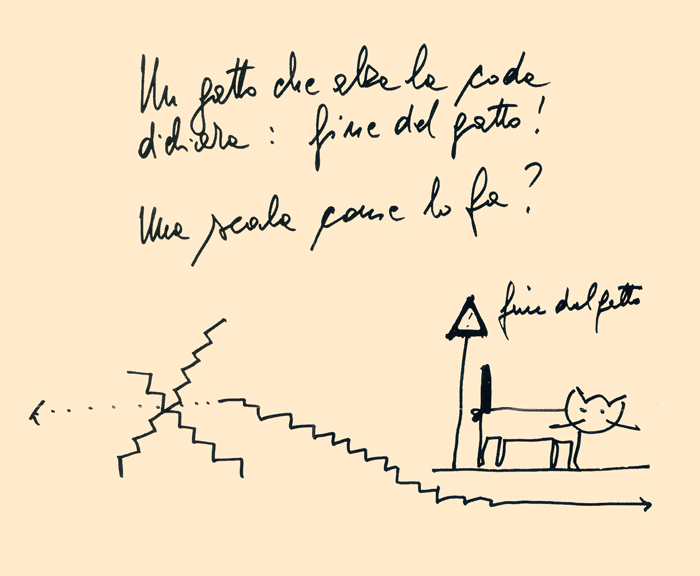 Un gatto che alza la coda
dichiara : fine del gatto!
Una scala come lo fa?
fine del gatto